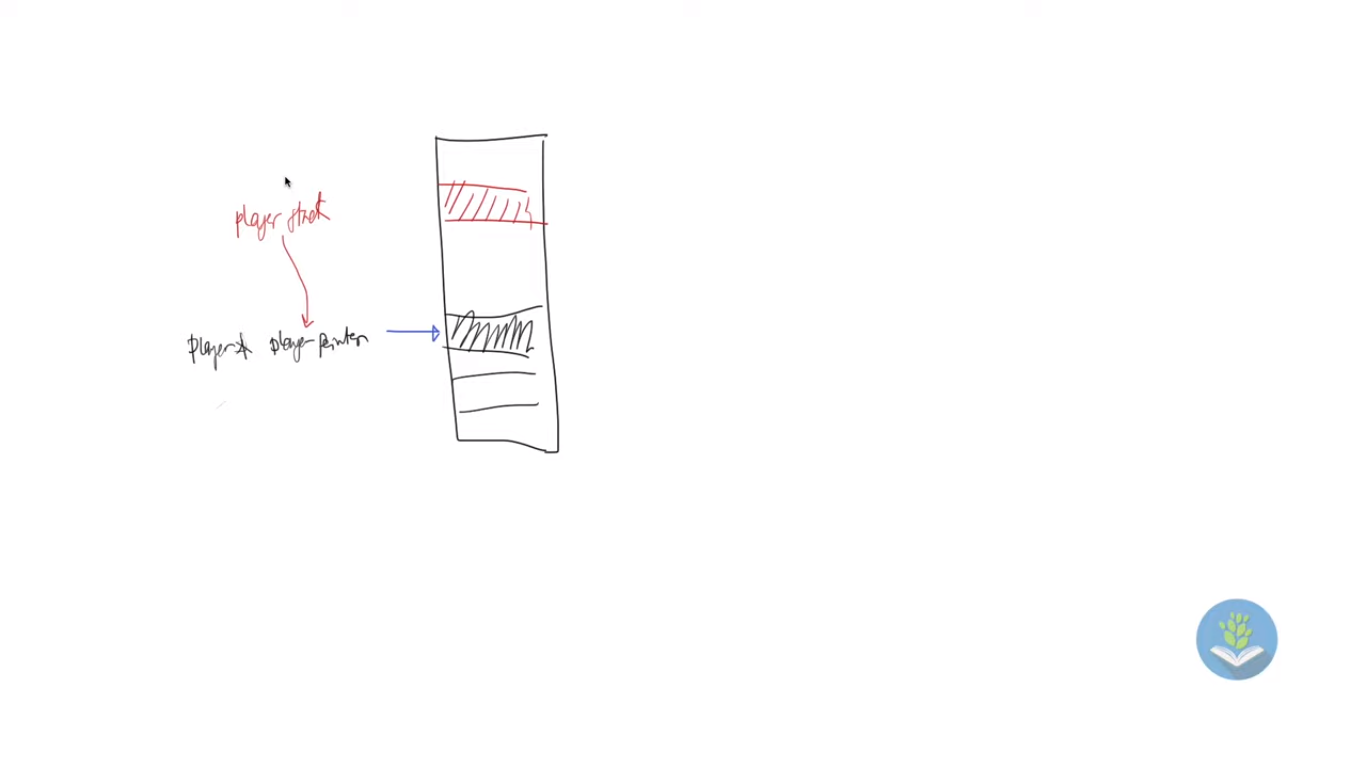 player struct
player* player pointer